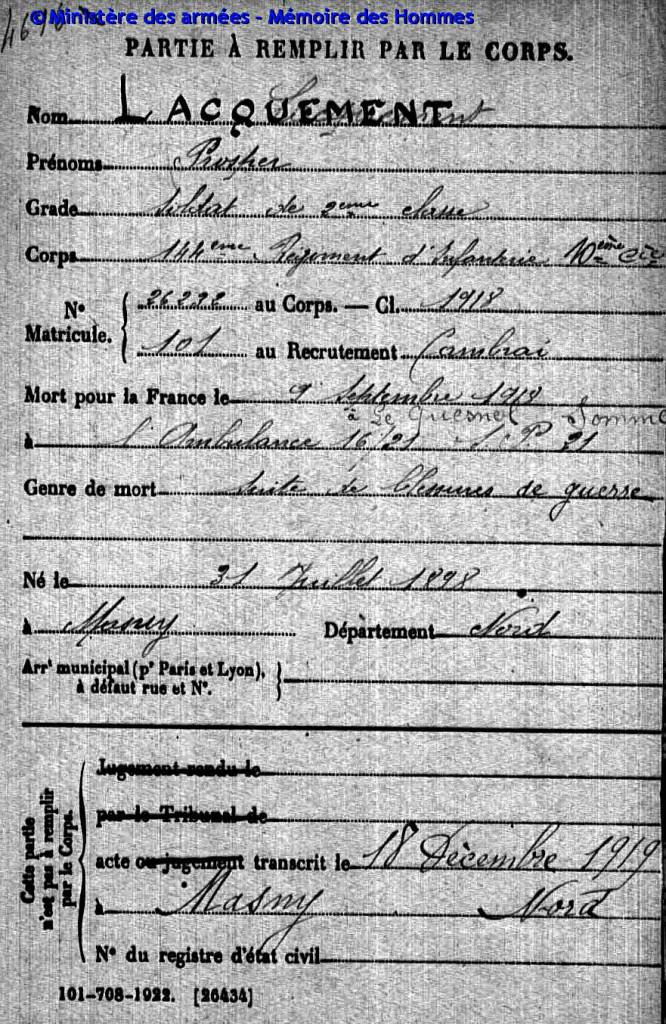 © Ministère des armées - Mémoire des Hommes
PARTIE À REMPLIR PAR LE CORPS.
Nom LACQUEMENT
Prénoms Prosper
Grade Soldat de 2eme classe
Corps 144eme Régiment d'Infanterie 10eme Cie
N° Matricule. 26222 au Corps. — Cl. 1918
101 au Recrutement Cambrai
Mort pour la France le 9 Septembre 1918
à Le Quesnel Somme
à l'Ambulance 16/21 S.P. 21
Genre de mort suite de blessures de guerre
Né le 31 Juillet 1898
à Masny Département Nord
Arrt municipal (pr Paris et Lyon),
à défaut rue et N°.
Cette partie
n'est pas à remplir
par le Corps.
Jugement rendu le
par le Tribunal de
acte ou jugement transcrit le 18 Décembre 1919
à Masny Nord
N° du registre d'état civil
101-708-1922. [26434]